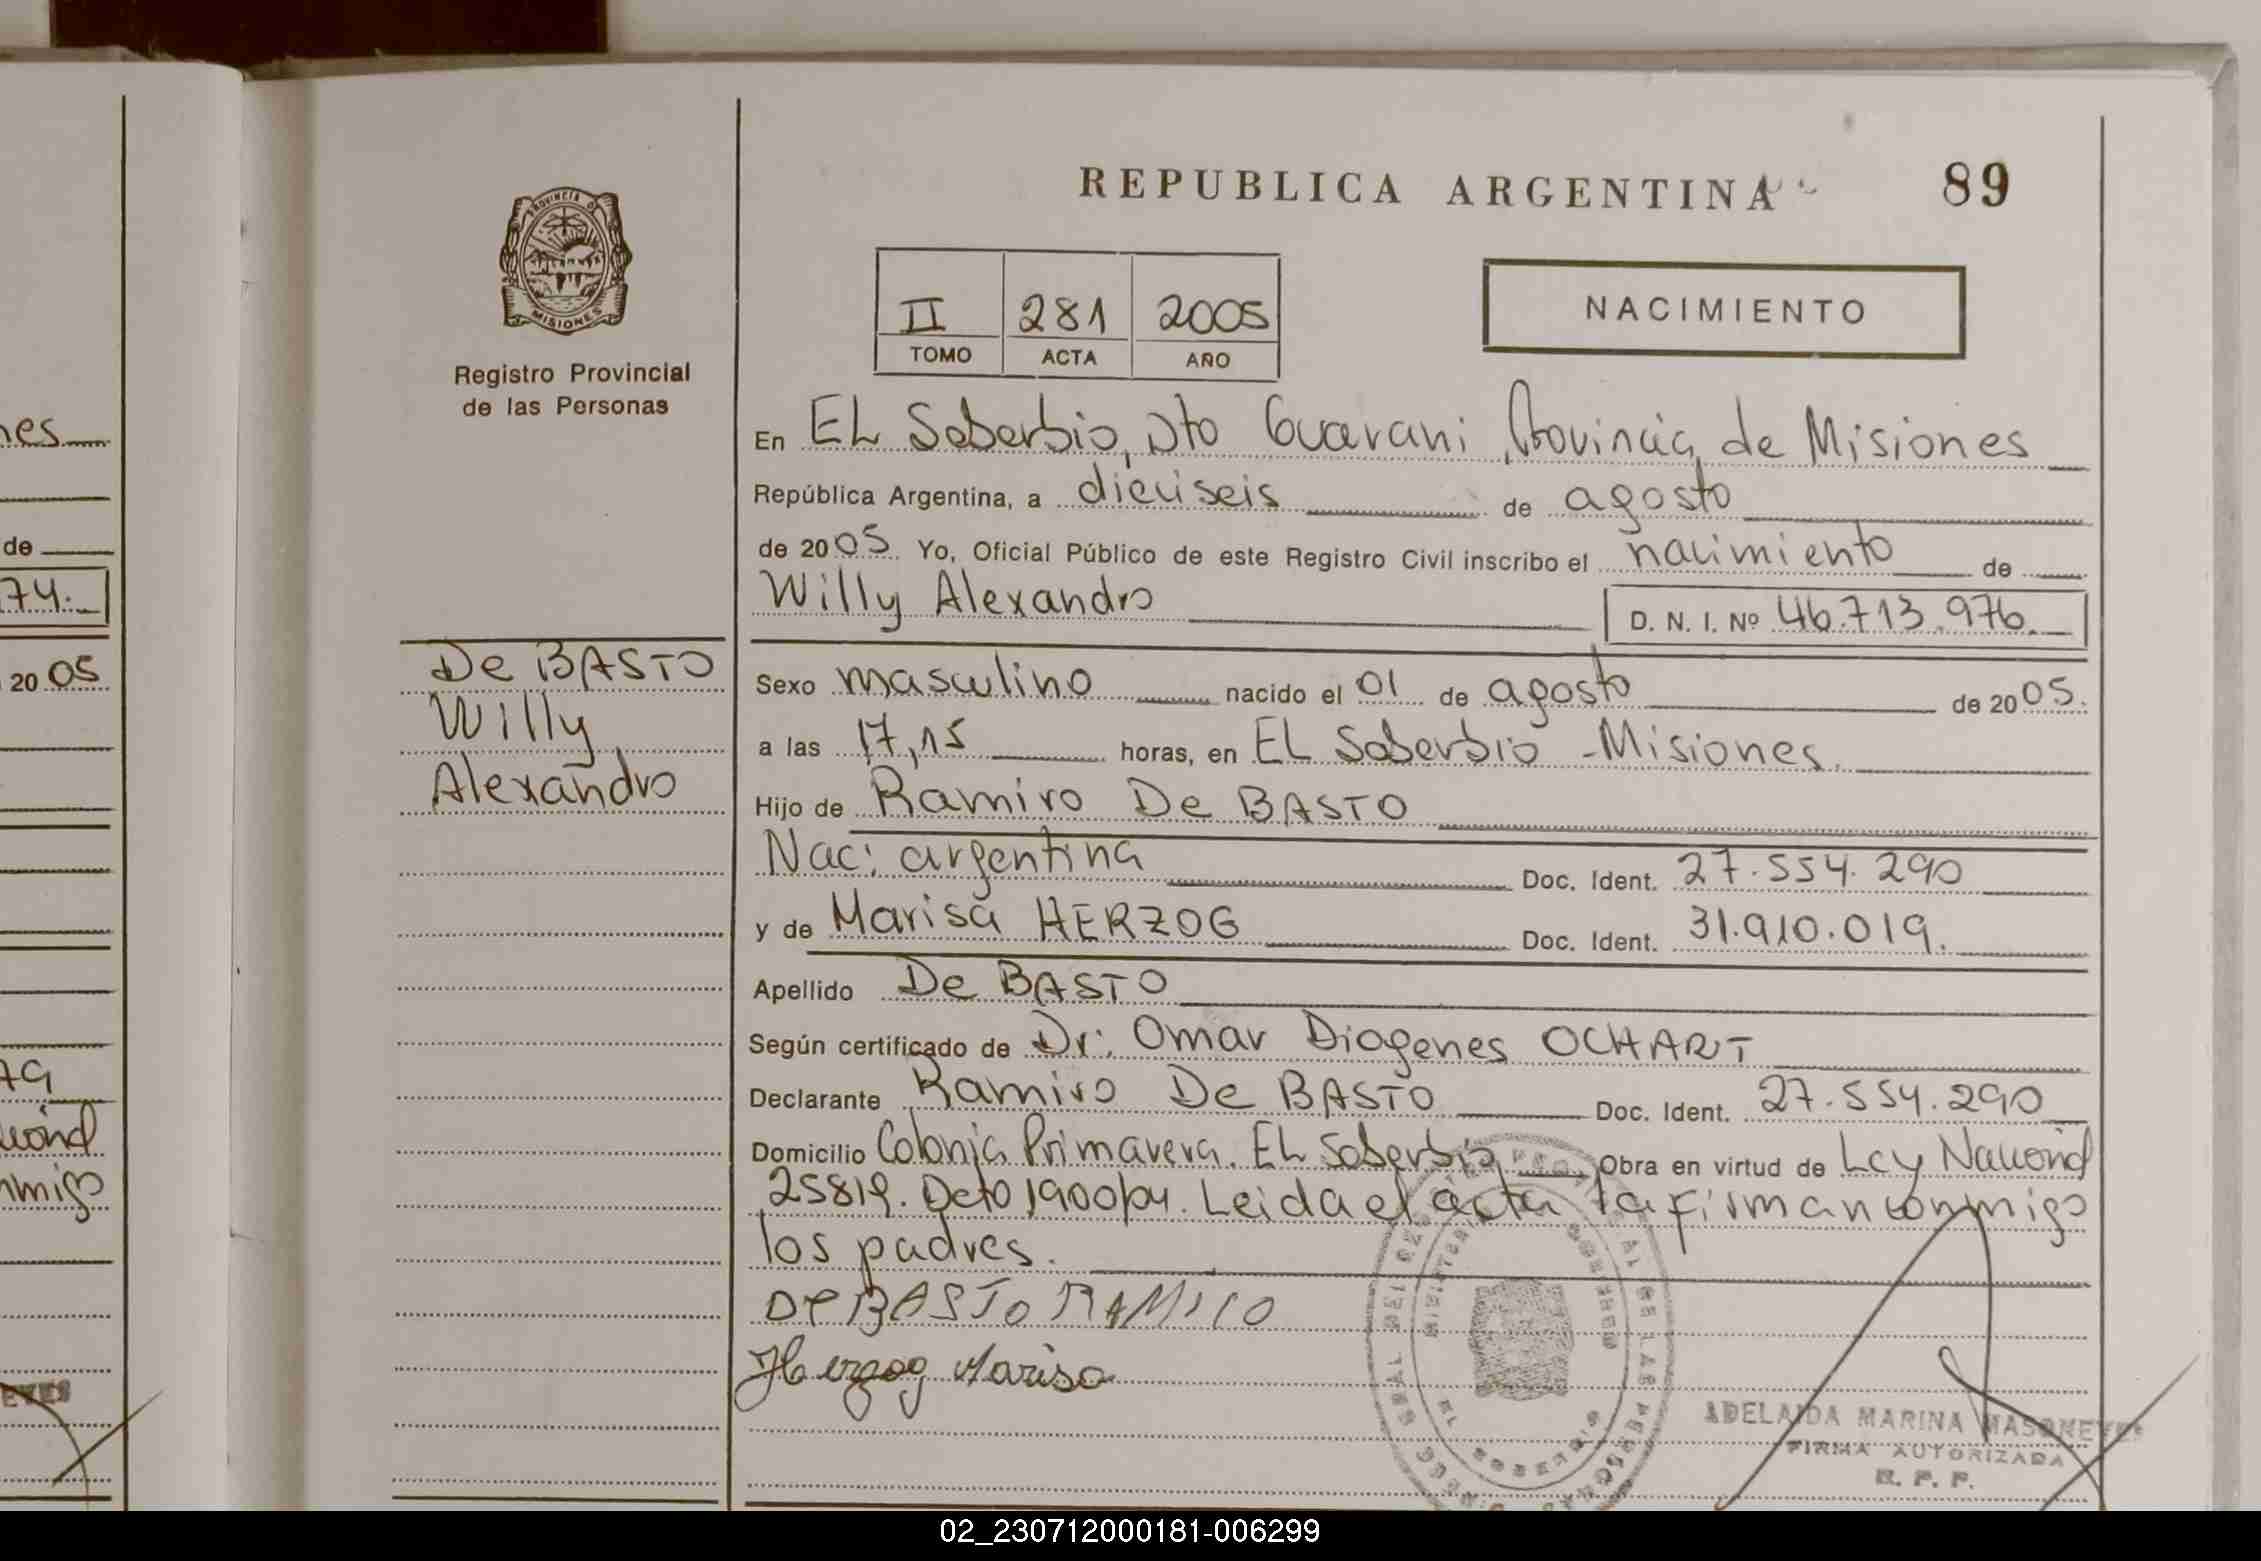 nes
de
74.
20 05
79
Nacional
conmigo
EYES
PROVINCIA DE
MISIONES
Registro Provincial
de las Personas
De BASTO
Willy
Alexandro
REPUBLICA ARGENTINA 89
II 281 2005
TOMO ACTA AÑO
NACIMIENTO
En EL Soberbio, Dto Guarani, Provincia de Misiones
República Argentina, a dieciseis de agosto
de 2005 Yo, Oficial Público de este Registro Civil inscribo el nacimiento de
Willy Alexandro D. N. I. Nº 46.713.976.
Sexo masculino nacido el 01 de agosto de 2005.
a las 17,15 horas, en EL Soberbio - Misiones.
Hijo de Ramiro De BASTO
Nac: argentina Doc. Ident. 27.554.290
y de Marisa HERZOG Doc. Ident. 31.910.019.
Apellido De BASTO
Según certificado de Dr: Omar Diogenes OCHART
Declarante Ramiro De BASTO Doc. Ident. 27.554.290
Domicilio Colonia Primavera. EL Soberbio Obra en virtud de Ley Nacional
25819. Dcto 1900/04. Leida el acta la firman conmigo
los padres.
DE BASTO RAMIRO
Herzog Marisa
EL SOBERBIO
ADELAIDA MARINA MASONEYES
FIRMA AUTORIZADA
R. P. P.
02_230712000181-006299